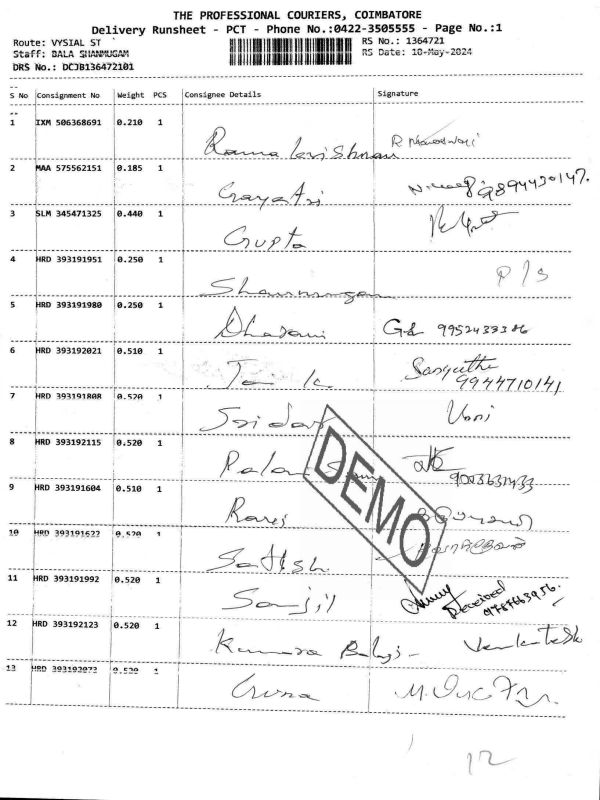 THE PROFESSIONAL COURIERS, COIMBATORE
Delivery Runsheet - PCT - Phone No.:0422-3505555 - Page No.:1
Route: VYSIAL ST RS No.: 1364721
Staff: BALA SHANMUGAM RS Date: 10-May-2024
DRS No.: DCJB136472101
S No Consignment No Weight PCS Consignee Details Signature
1 IXM 506368691 0.210 1
Rama krishnan
2 MAA 575562151 0.185 1
Gayatri 9894430147.
3 SLM 345471325 0.440 1
Gupta
4 HRD 393191951 0.250 1
Shanmugam P/S
5 HRD 393191980 0.250 1
Dharani 9952433386
6 HRD 393192021 0.510 1
Sangeetha
9944710141
7 HRD 393191808 0.520 1
Sridar
8 HRD 393192115 0.520 1
9 HRD 393191604 0.510 1
Ravi
10 HRD 393191622 0.520 1
Sathish
11 HRD 393191992 0.520 1
Received
12 HRD 393192123 0.520 1
Kumara Balaji Venkatesh
13 HRD 393192072 0.520 1
DEMO
12